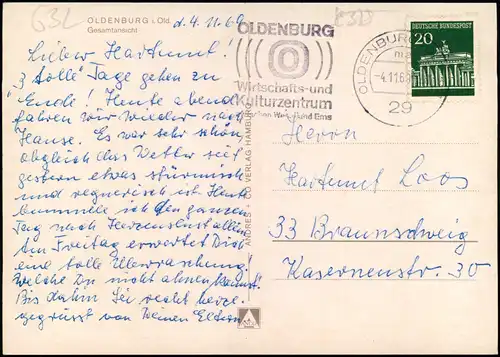 G3L
OLDENBURG i. Old.
Gesamtansicht
d. 4. 11. 68
Lieber Hartmut!
"3 tolle" Tage gehen zu
Ende! Heute abend
fahren wir wieder nach
Hause. Es war sehr schön,
obgleich das Wetter seit
gestern etwas stürmisch
und regnerisch ist. Heute
bummele ich den ganzen
Tag nach Herzenslust allein.
Am Freitag erwartet Dich
eine tolle Überraschung!
welche Du nicht ahnen kannst.
Bis dahin sei recht herzl.
gegrüsst von Deinen Eltern
ANDRES + CO VERLAG HAMBURG
OLDENBURG
Wirtschafts-und
Kulturzentrum
zwischen Weser und Ems
OLDENBURG
-4.11.68
29
DEUTSCHE BUNDESPOST
20
Herrn
Hartmut Loos
33 Braunschweig
Kasernenstr. 30